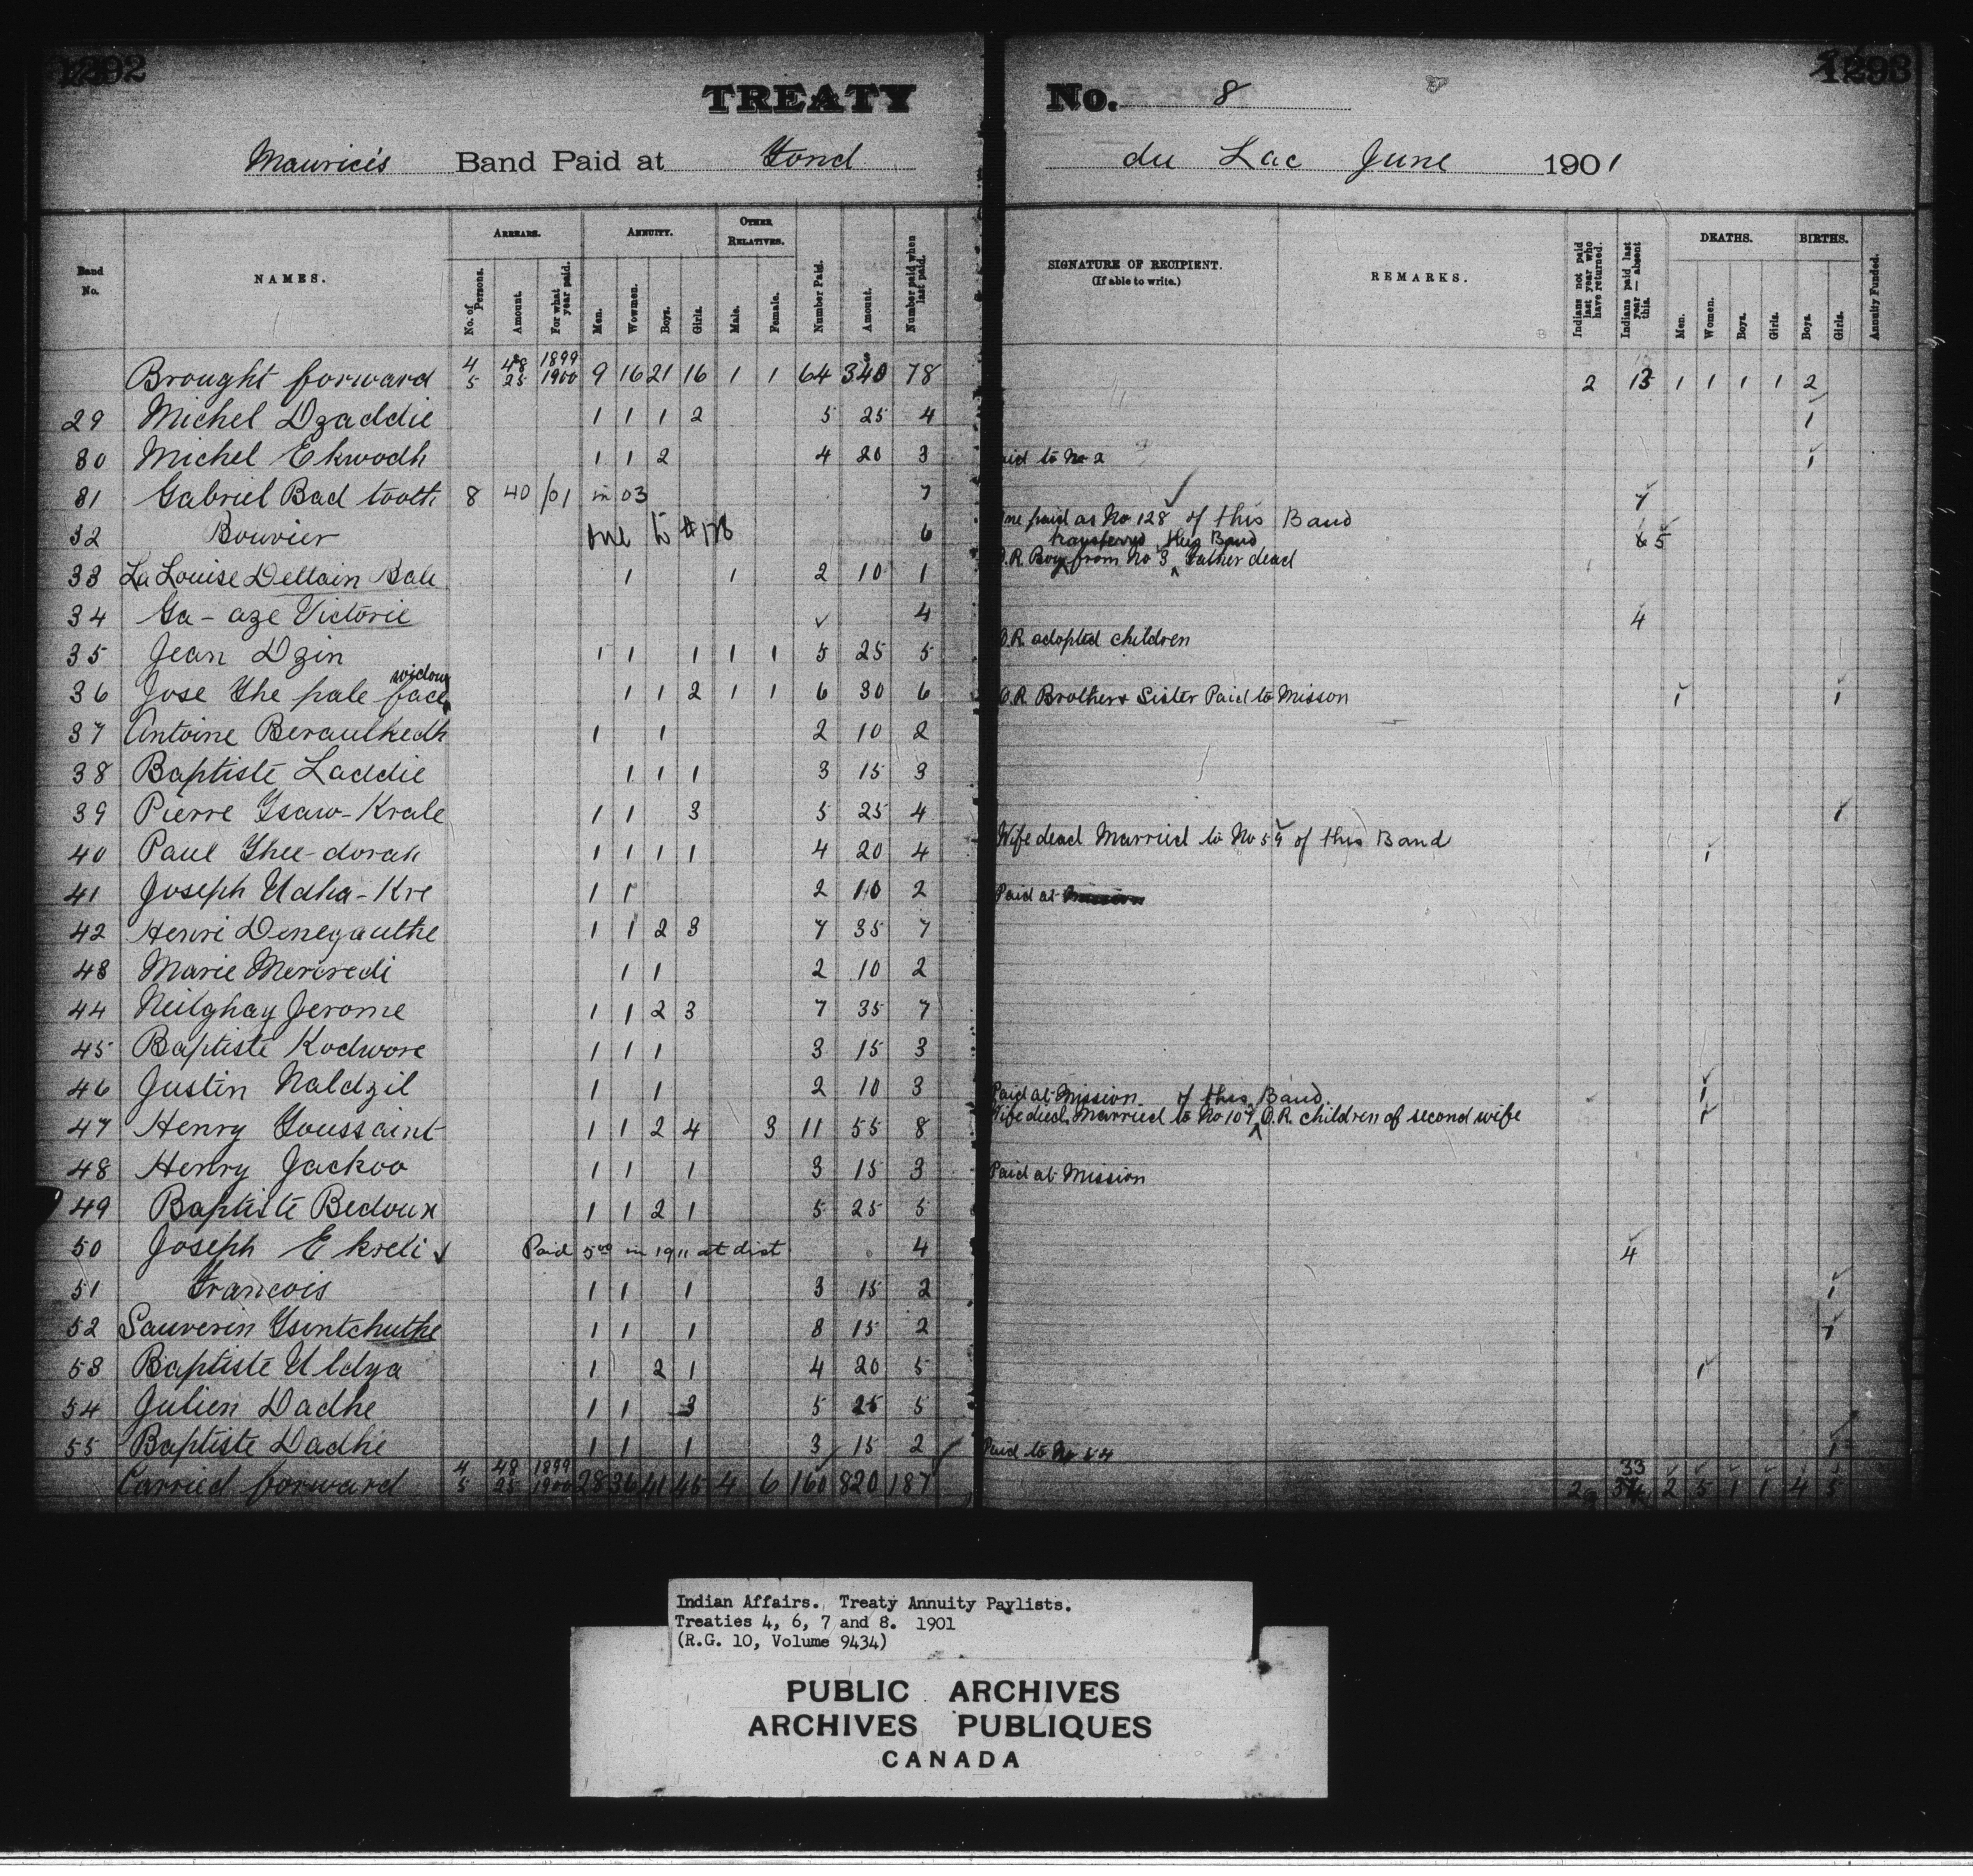 1292
1293
TREATY No. 8
Maurice's Band Paid at Fond du Lac June 1901
Band No.
NAMES.
ARREARS.
No. of Persons.
Amount.
For what year paid.
ANNUITY.
Men.
Women.
Boys.
Girls.
OTHER RELATIVES.
Male.
Female.
Number Paid.
Amount.
Number paid when last paid.
SIGNATURE OF RECIPIENT.
(If able to write.)
REMARKS.
Indians not paid last year who have returned.
Indians paid last year — absent this.
DEATHS.
Men.
Women.
Boys.
Girls.
BIRTHS.
Boys.
Girls.
Annuity Funded.
4 48 1899
Brought forward 5 25 1900 9 16 21 16 1 1 64 340 78 2 13 1 1 1 1 2
29 Michel Dzaddie 1 1 1 2 5 25 4 1
30 Michel Ekwodh 1 1 2 4 20 3 Paid to No 2 1
31 Gabriel Bad tooth 8 40 /01 in 03 7 7
One paid as No 128 of this Band
32 Bouvier one to #178 6 5
transferred this Band
33 La Louise Deltain Bale 1 1 2 10 1 O.R. Boy from No 3 Father dead
34 Ga-aze Victorie 4 4
35 Jean Dzin 1 1 1 1 1 5 25 5 O.R. adopted children
36 Jose The pale face widow 1 1 2 1 1 6 30 6 O.R. Brother & Sister Paid to Misson 1 1
37 Antoine Beraulkedh 1 1 2 10 2
38 Baptiste Laddie 1 1 1 3 15 3
39 Pierre Tsaw-Krale 1 1 3 5 25 4 1
40 Paul Thee-dorah 1 1 1 1 4 20 4 Wife dead Married to No 59 of this Band 1
41 Joseph Udha-Kre 1 1 2 10 2 Paid at
42 Henri Denegauthe 1 1 2 3 7 35 7
43 Marie Mercredi 1 1 2 10 2
44 Neilghay Jerome 1 1 2 3 7 35 7
45 Baptiste Kodwore 1 1 1 3 15 3
46 Justin Naldzil 1 1 2 10 3 Paid at Mission 1
47 Henry Toussaint 1 1 2 4 3 11 55 8 Wife died. Married to No 107 of this Band O.R. children of second wife 1
48 Henry Jackoo 1 1 1 3 15 3 Paid at Mission
49 Baptiste Bedoux 1 1 2 1 5 25 5
50 Joseph Ekreli Paid 5.00 in 1911 at dist 4 4
51 Francois 1 1 1 3 15 2 1
52 Sauverin Tsintchuthe 1 1 1 3 15 2 1
53 Baptiste Uldya 1 2 1 4 20 5 1
54 Julien Dadhe 1 1 3 5 25 5
55 Baptiste Dadhe 1 1 1 3 15 2 Paid to No 54 1
4 48 1899 33
Carried forward 5 25 1900 28 36 41 45 4 6 160 820 187 2 34 2 5 1 1 4 5
Indian Affairs. Treaty Annuity Paylists.
Treaties 4, 6, 7 and 8. 1901
(R.G. 10, Volume 9434)
PUBLIC ARCHIVES
ARCHIVES PUBLIQUES
CANADA